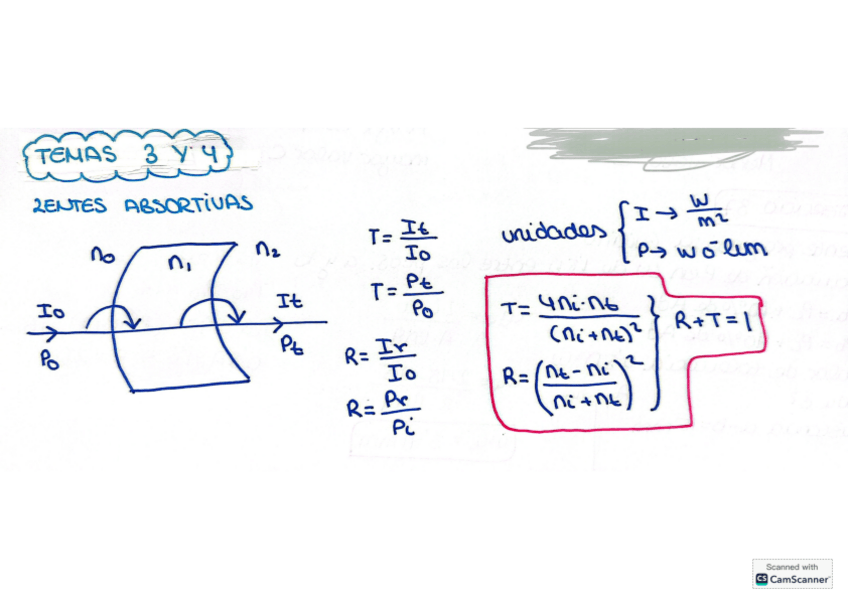 TEMAS 3 Y 4
LENTES ABSORTIVAS
n₀ n₁ n₂
I₀ It
P₀ Pt
T = It / I₀
T = Pt / P₀
R = Ir / I₀
R = Pr / Pi
unidades { I → W/m²
P → W ó lum
T = 4ni·nt / (ni+nt)²
R = ((nt-ni) / (ni+nt))²
} R+T=1
Scanned with
CS CamScanner